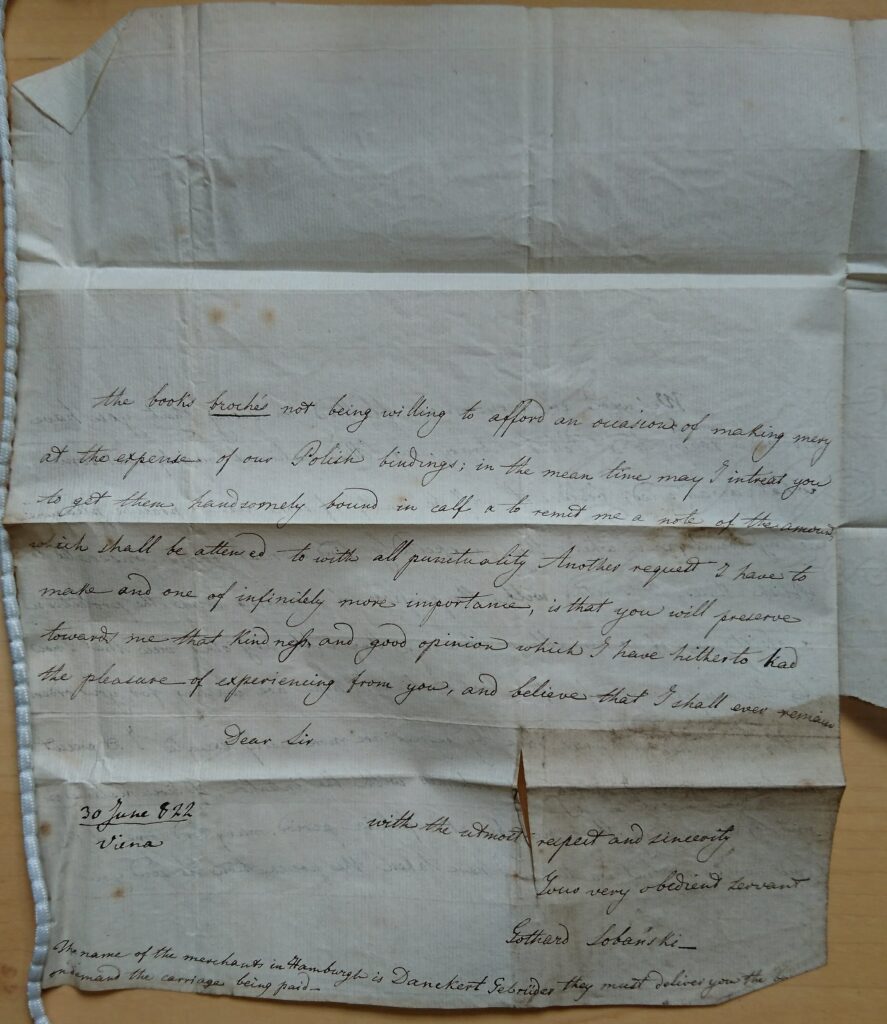 the books brochés not being willing to afford an occasion of making mery
at the expense of our Polish bindings; in the mean time may I intreat you
to get them handsomely bound in calf a to remit me a note of the amount
which shall be attened to with all puntuality Another request I have to
make and one of infinitely more importance, is that you will preserve
towards me that kindness and good opinion which I have hitherto had
the pleasure of experiencing from you, and believe that I shall ever remain
Dear Sir
30 June 822
Viena
with the utmost respect and sincerity
Your very obedient servant
Gothard Sobański
The name of the merchants in Hamburgh is Danckert Gebrüder they must deliver you the
on demand the carriage being paid